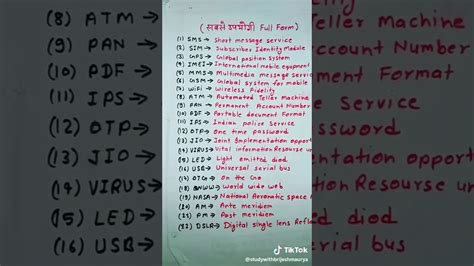 (8) ATM→
(9) PAN→
(10) PDF→
(11) IPS→
(12) OTP→
(13) JIO→
(14) VIRUS→
(15) LED→
(16) USB→
( सबसे उपयोगी Full Form )
(1) SMS → Short message service
(2) SIM → Subscriber Identity Module
(3) GPS → Global position system
(4) IMEI → International mobile equipment
(5) MMS → Multimedia message service
(6) GSM → Global system for mobile
(7) WiFi → Wireless Fidelity
(8) ATM → Automated Teller Machine
(9) PAN → Permanent Account Number
(10) PDF → Portable document Format
(11) IPS → Indian police Service
(12) OTP → One time password
(13) JIO → Joint Implementation opport
(14) VIRUS → Vital information Resourse un
(15) LED → Light emitted diod
(16) USB → Universal serial bus
(17) OTG → On the Go
(18) WWW → World wide web
(19) NASA → National Aeronatic space
(20) AM → Ante meridiem
(21) PM → Post meridiem
(22) DSLR → Digital single lens Refl
TikTok
@studywithbrijeshmaurya
Teller Machine
Account Number
Format
Service
password
ementation opport
tion Resourse u
ed diod
erial bus